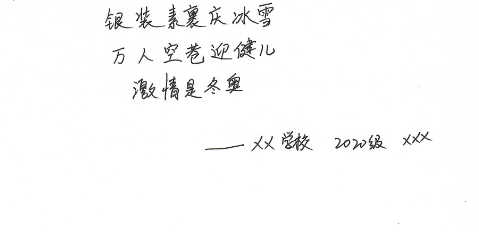 银装素裹庆冰雪
万人空巷迎健儿
激情是冬奥
——XX学校 2020级 XXX